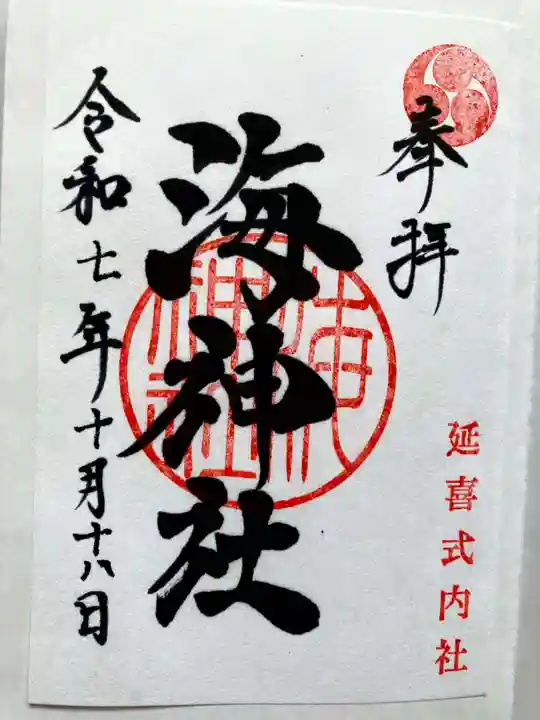 奉拝
延喜式内社
海神社
令和七年十月十八日